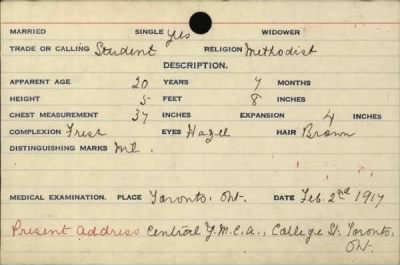 MARRIED SINGLE Yes WIDOWER
TRADE OR CALLING Student RELIGION Methodist
DESCRIPTION.
APPARENT AGE 20 YEARS 7 MONTHS
HEIGHT 5 FEET 8 INCHES
CHEST MEASUREMENT 37 INCHES EXPANSION 4 INCHES
COMPLEXION Fresh EYES Hazel HAIR Brown
DISTINGUISHING MARKS
MEDICAL EXAMINATION. PLACE Toronto, Ont. DATE Feb. 2nd 1917
Present Address Central Y.M.C.A., College St. Toronto,
Ont.